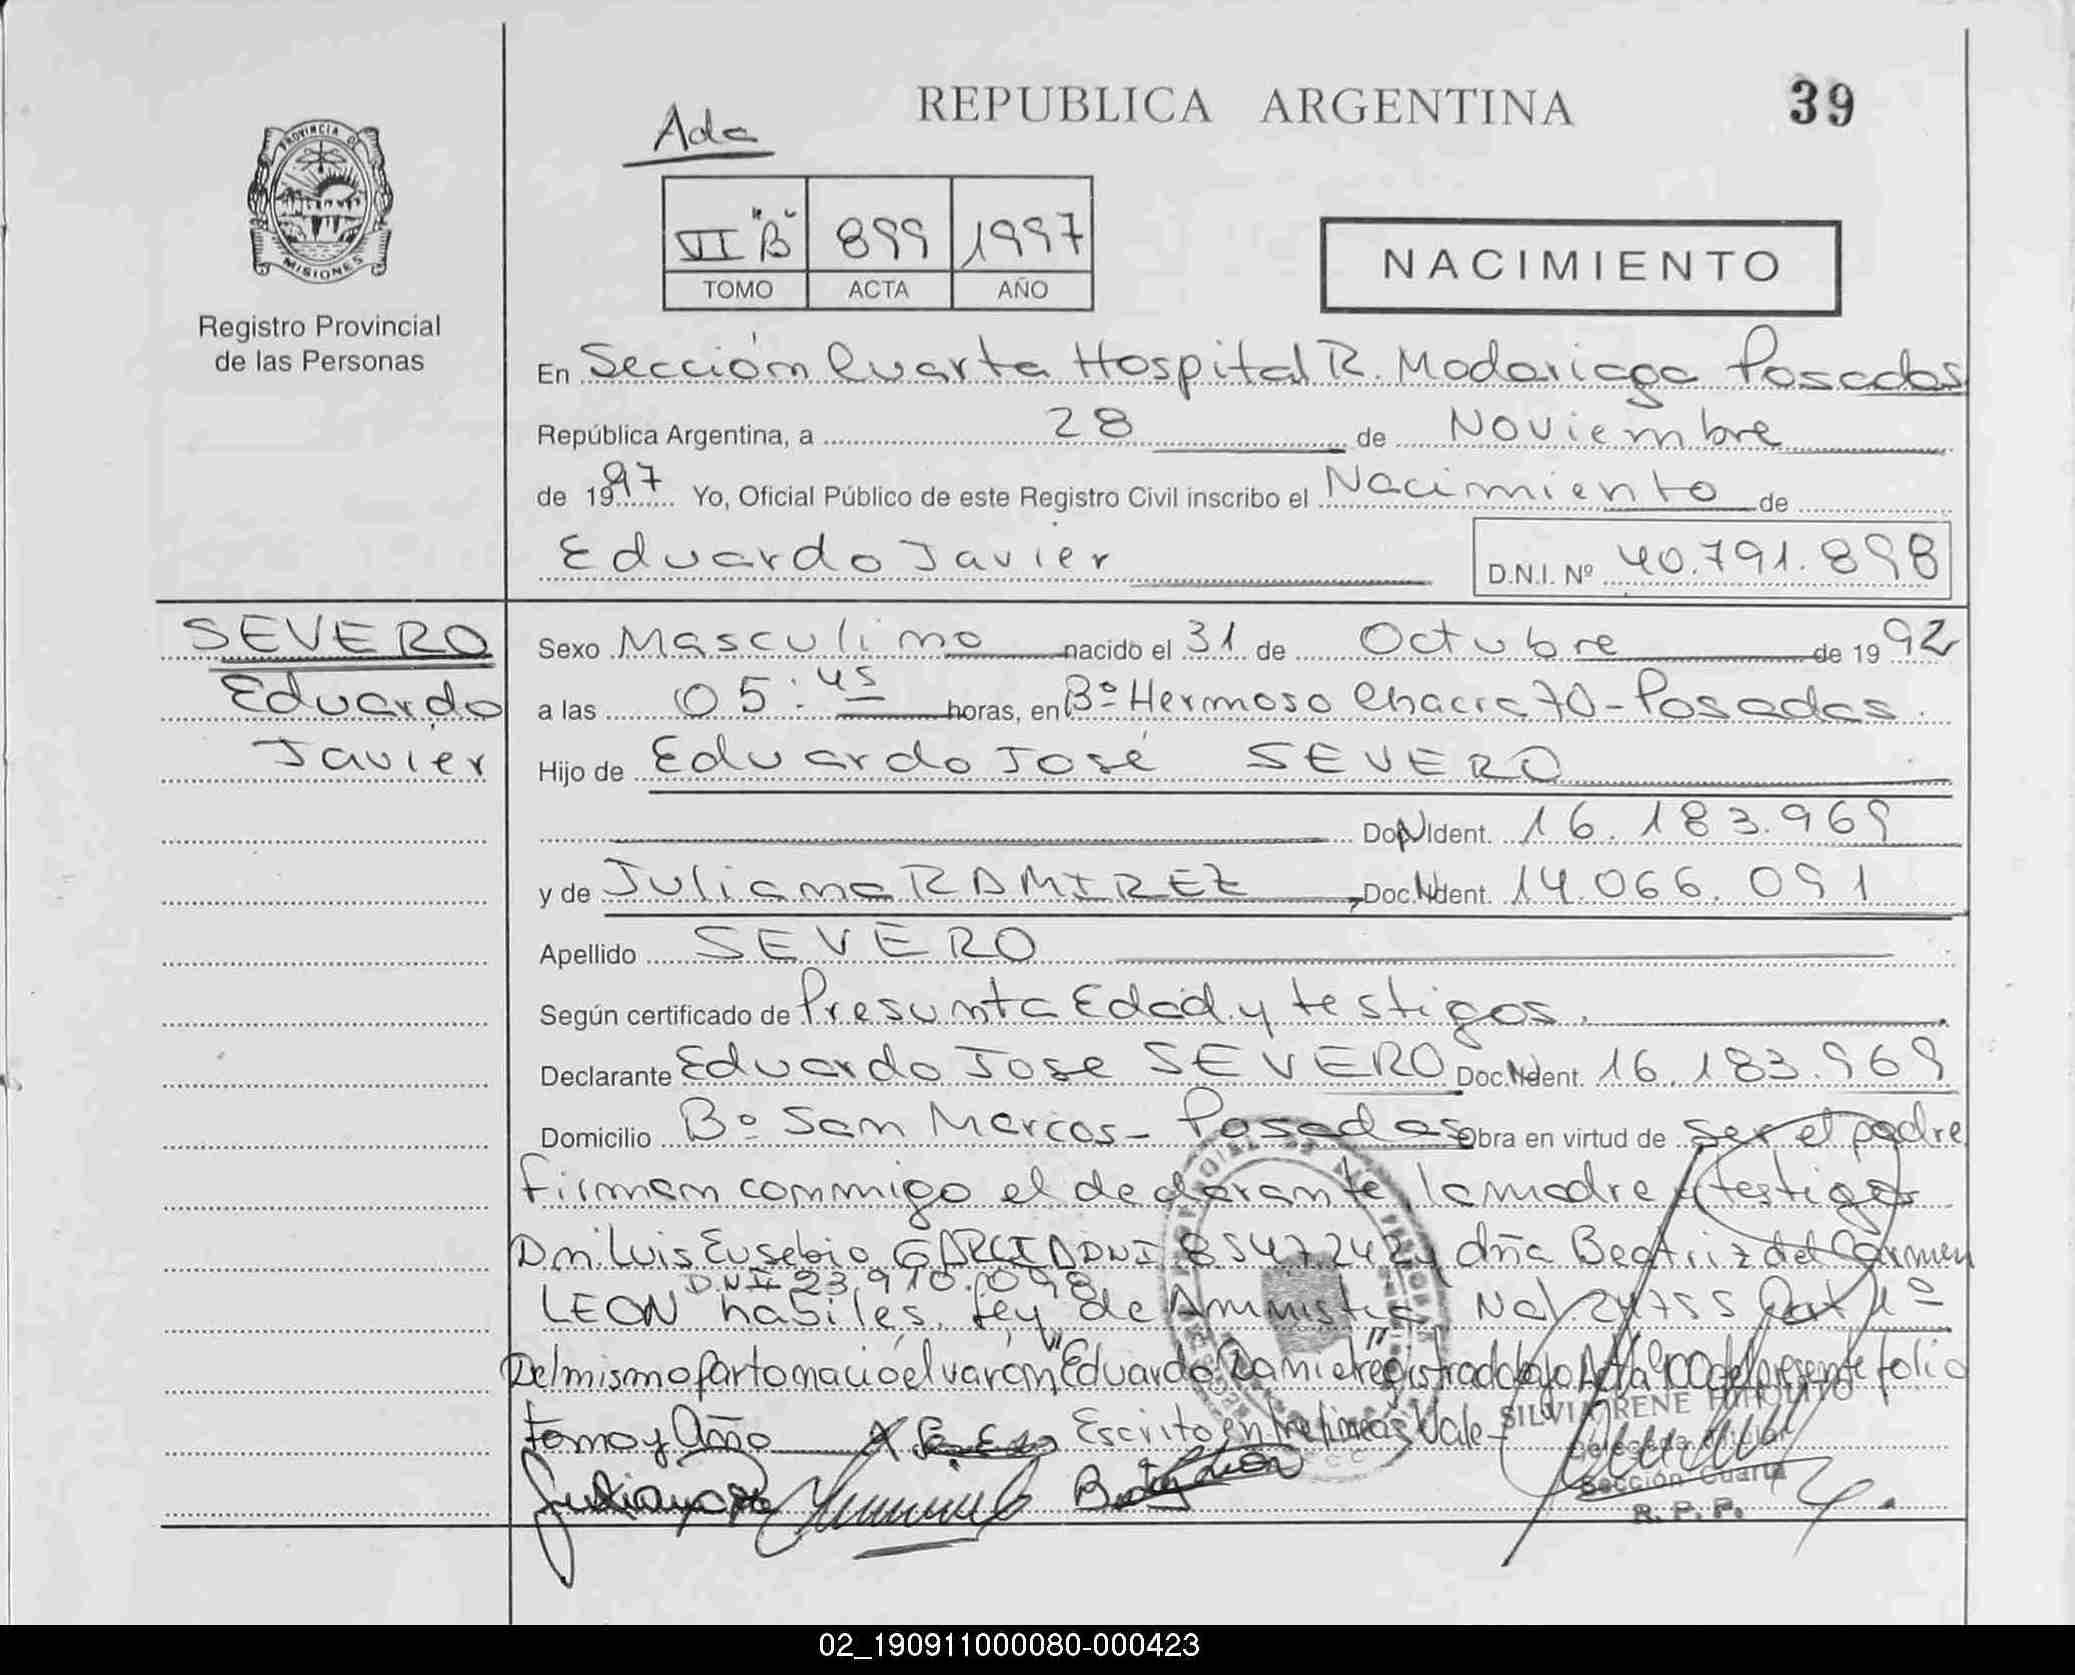 REPUBLICA ARGENTINA
39
Ada
PROVINCIA DE
MISIONES
VI "B" 899 1997
TOMO ACTA AÑO
NACIMIENTO
Registro Provincial
de las Personas
En Sección Cuarta Hospital R. Madariaga Posadas
República Argentina, a 28 de Noviembre
de 1997 Yo, Oficial Público de este Registro Civil inscribo el Nacimiento de
Eduardo Javier D.N.I. Nº 40.791.898
SEVERO
Eduardo
Javier
Sexo Masculino nacido el 31 de Octubre de 1992
a las 05:45 horas, en Bº Hermoso Chacra 70 - Posadas.
Hijo de Eduardo José SEVERO
Doc. Ident. 16.183.969
y de Juliana RAMIREZ, Doc. Ident. 14.066.091
Apellido SEVERO
Según certificado de Presunta Edad y testigos.
Declarante Eduardo Jose SEVERO Doc. Ident. 16.183.969
Domicilio Bº San Marcos - Posadas obra en virtud de ser el padre
firman conmigo el declarante, la madre y testigos
Dn. Luis Eusebio GARCIA DNI 8547242 y dña Beatriz del Carmen
DNI 23.910.098
LEON habiles, Ley de Amnistia Nal. 24755 Art 1º
Del mismo parto nació el varón "Eduardo Daniel" registrado bajo Acta 900 del presente folio
tomo y Año Escrito entrelineas Vale
SILVIA IRENE HIPOLITO
Delegada Titular
Sección Cuarta
R. P. P.
02_190911000080-000423